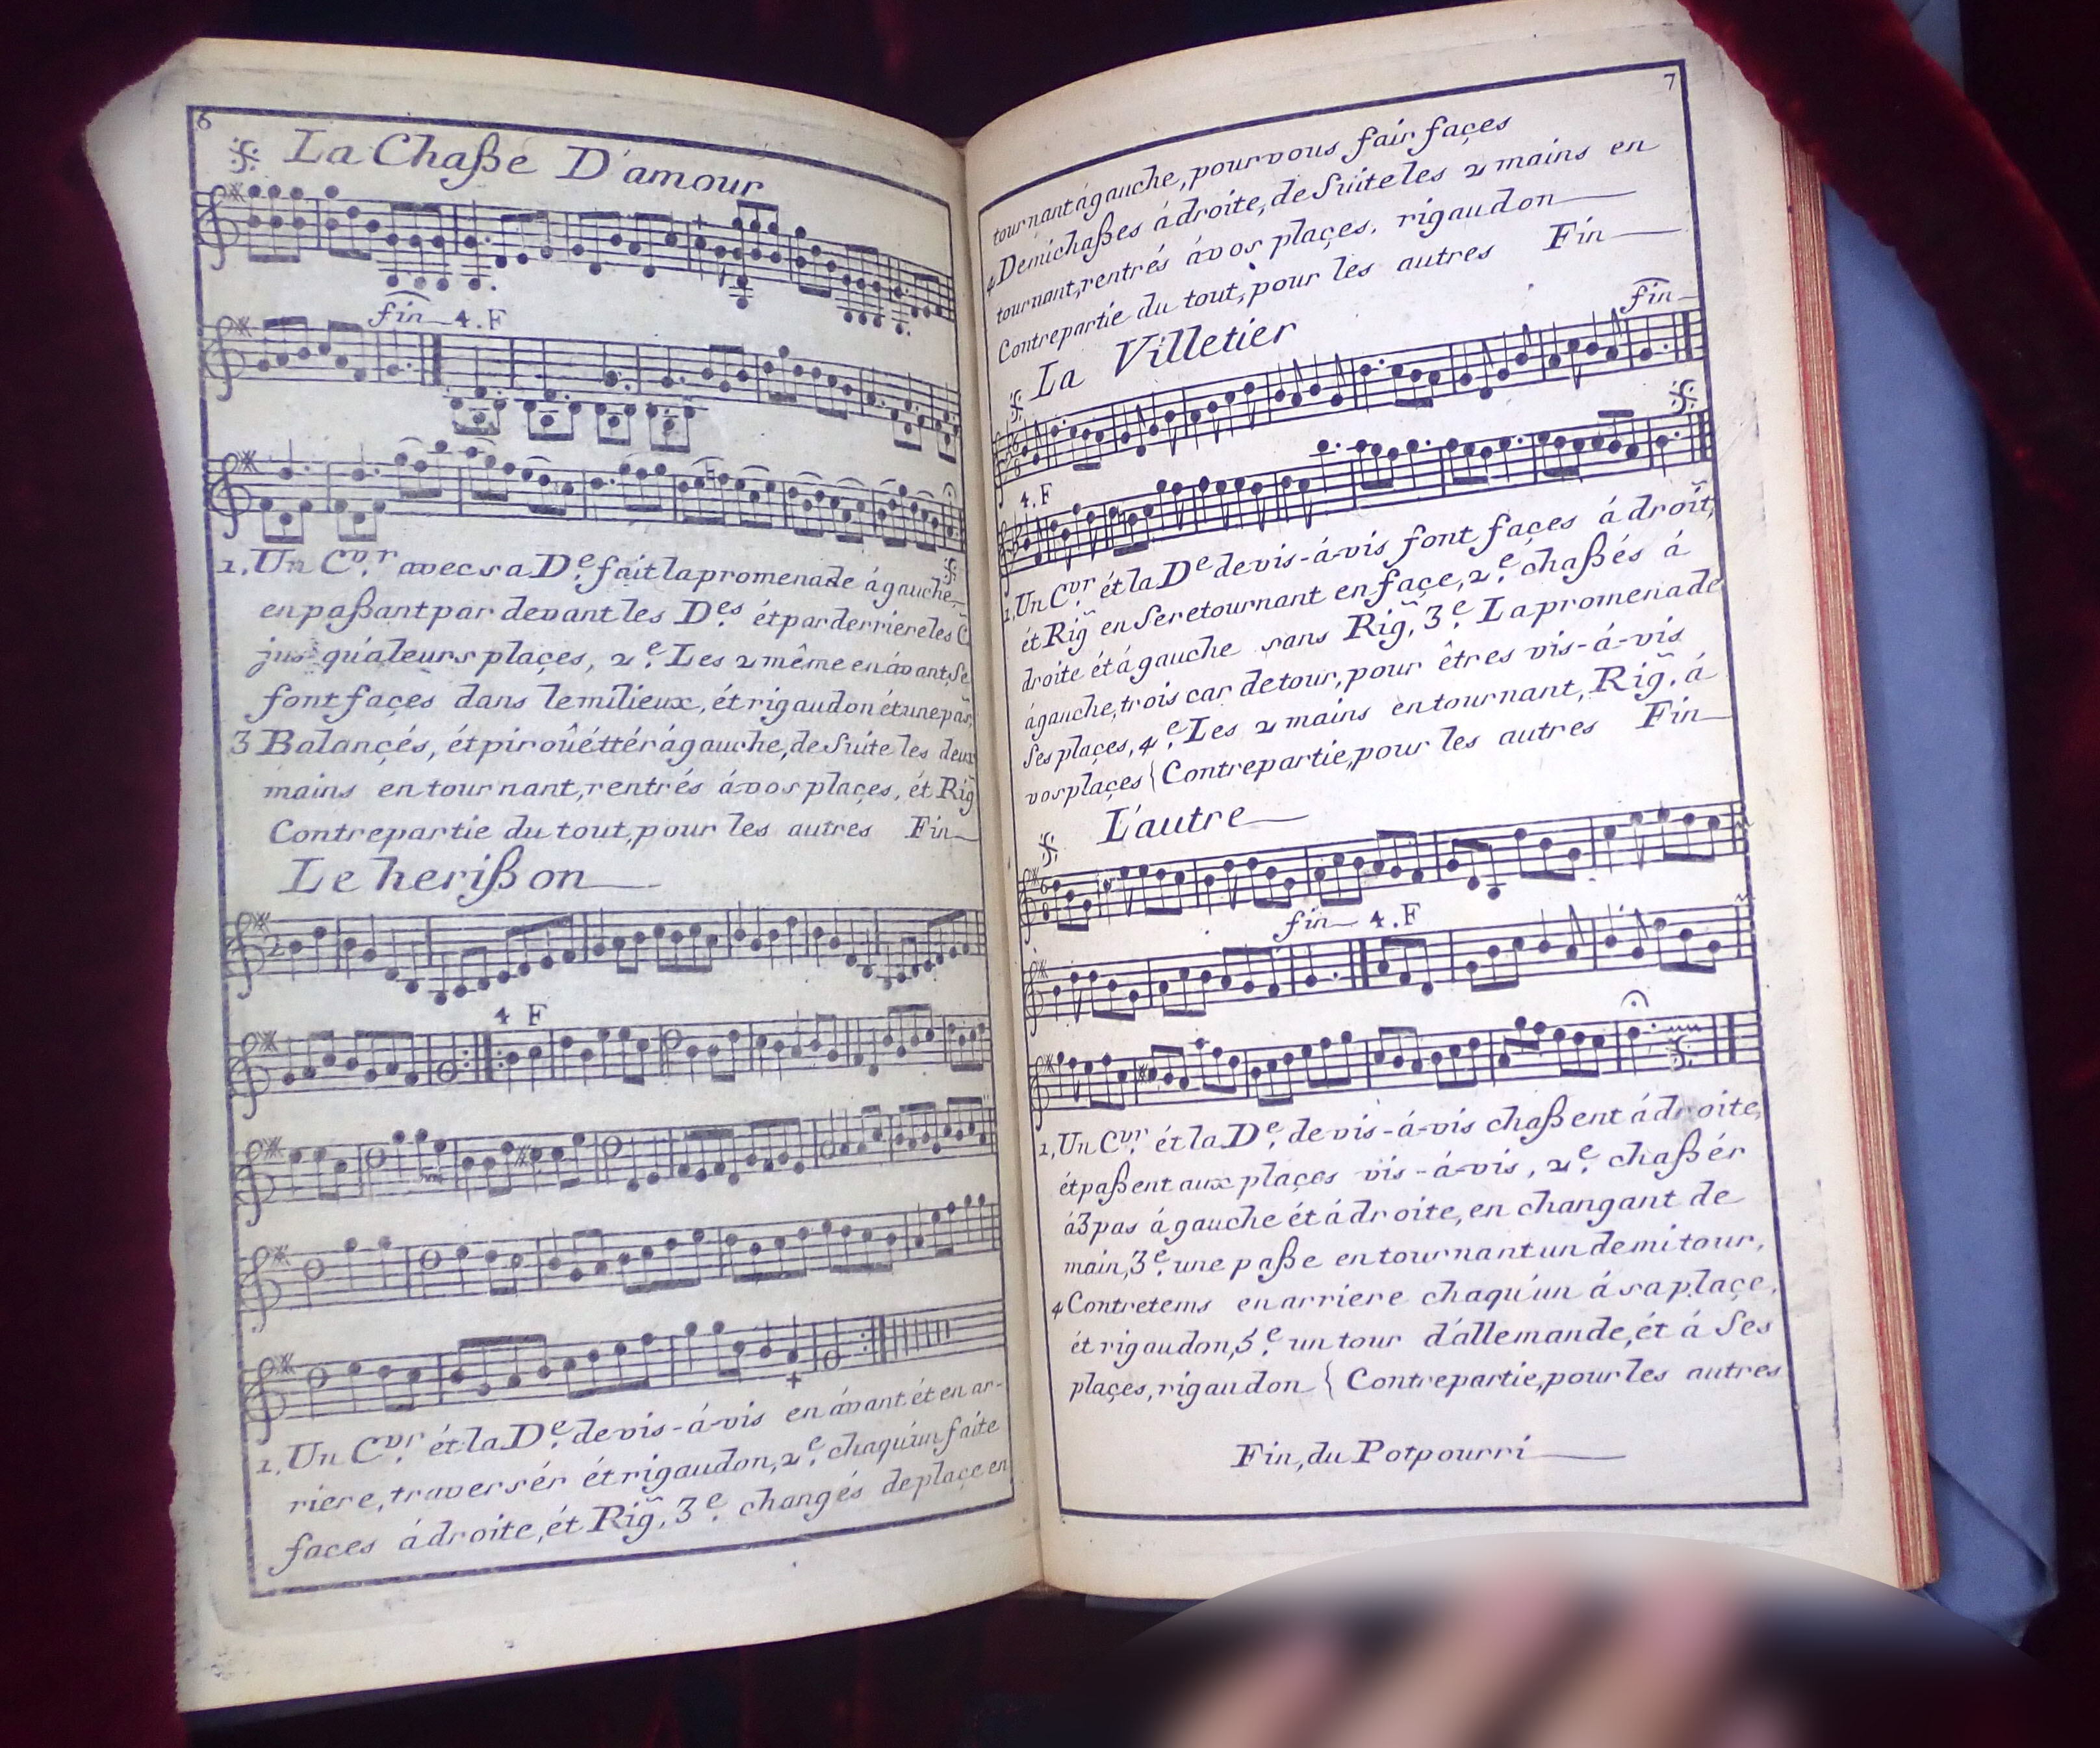 6
La Chaße D'amour
fin 4.F
1. Un C.vr avec sa D.e fait la promenade á gauche,
en paßant par devant les D.es ét par derriere les C
jus-qu'a leurs plaçes, 2.e Les 2 même en ávant, Se
font façes dans le milieux, ét rigaudon ét une pas,
3 Balançés, ét piroûéttér á gauche, de Suite les deux
mains en tournant, rentrés á vos plaçes, ét Rig
Contrepartie du tout, pour les autres Fin
Le herißon
2
4 F
1. Un C.vr ét la D.e de vis-á-vis en ávant ét en ar-
riere, traversér ét rigaudon, 2.e chaqu'un faite
faces á droite, ét Rig̃. 3.e changés de plaçe en
7
tournant á gauche, pour vous fair façes
4 Demi chaßes á droite, de Suite les 2 mains en
tournant, rentrés á vos plaçes, rigaudon
Contrepartie du tout, pour les autres Fin
La Villetier
fin
6
8
4.F
1. Un C.vr ét la D.e de vis-á-vis font façes á droit,
ét Rig̃ en Se retournant en façe, 2.e chaßés á
droite ét á gauche sans Rig̃. 3.e La promenade
á gauche, trois car de tour, pour êtres vis-á-vis
Ses plaçes, 4.e Les 2 mains en tournant, Rig̃. á
vos plaçes { Contrepartie, pour les autres Fin
L'autre
6
8
fin 4.F
1. Un C.vr ét la D.e de vis-á-vis chaßent á droite,
ét paßent aux plaçes vis-á-vis, 2.e chaßér
á 3 pas á gauche ét á droite, en changant de
main, 3.e une paße en tournant un demi tour,
4 Contretems en arriere chaqu'un á sa plaçe,
ét rigaudon, 5.e un tour d'allemande, ét á Ses
plaçes, rigaudon { Contrepartie, pour les autres
Fin, du Potpourri